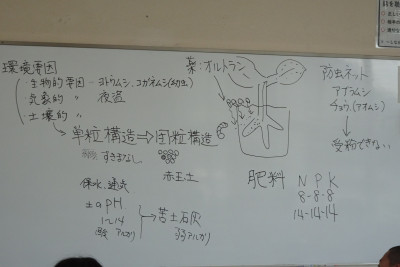 環境要因
生物的要因 - ヨトウムシ、コガネムシ(幼虫)
気象的 〃 夜盗
土壌的 〃
単粒構造→団粒構造
すきまなし
赤玉土
保水、通気
土のpH
1~14
酸 アルカリ
→苦土石灰
弱アルカリ
薬:オルトラン
防虫ネット
アブラムシ
チョウ(アオムシ)
受粉できない
肥料 N P K
8-8-8
14-14-14